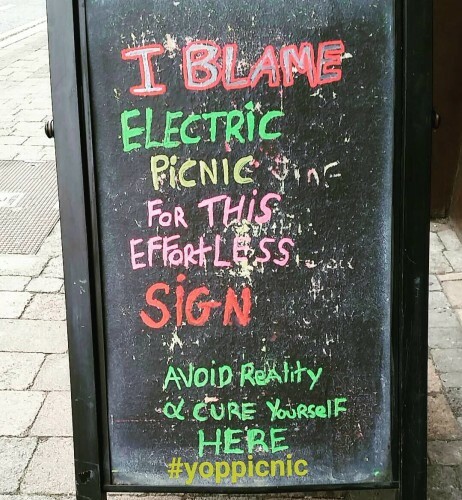 I BLAME
ELECTRIC
PiCNIC
FOR THiS
EFFORtLESS
SiGN
AVOiD ReALity
& CURE YourselF
HERE
#yoppicnic